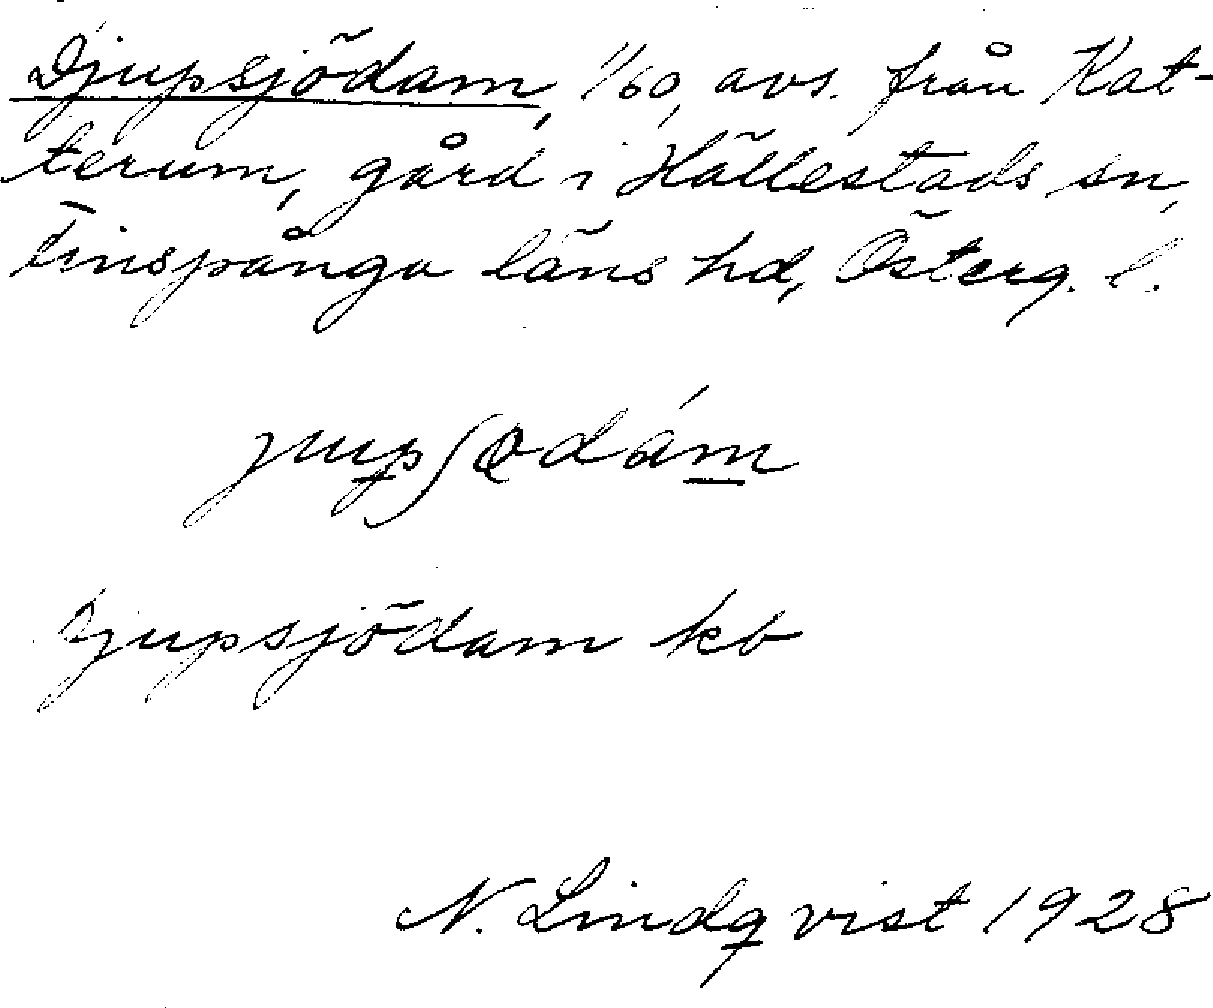 Djupsjödam, 1/60, avs. från Kat-
terum, gård i Hällestads sn,
Finspånga läns hd, Österg. l.
Djupsjödam kb
N. Lindqvist 1928